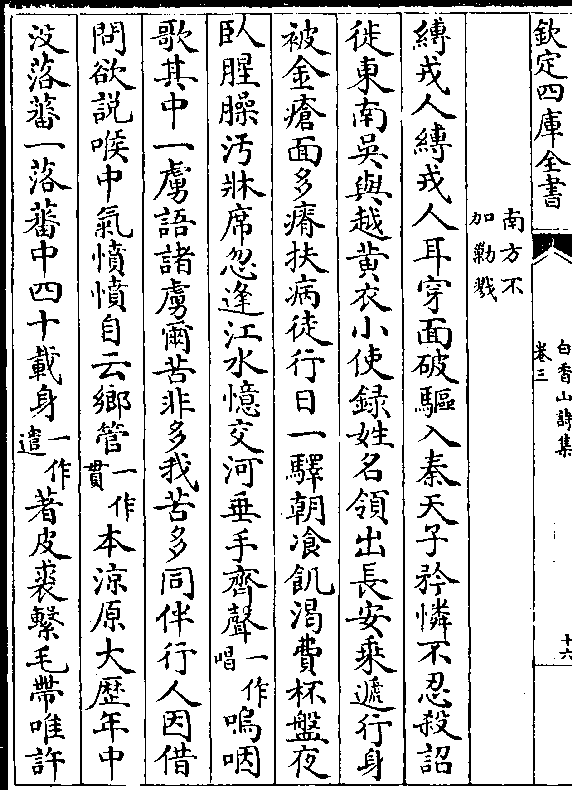 欽定四庫全書
白香山詩集
卷三
十六
南方不
加勦戮
縛戎人縛戎人耳穿面破驅入秦天子矜憐不忍殺詔
徙東南吳與越黃衣小使録姓名領出長安乘遞行身
被金瘡面多瘠扶病徒行日一驛朝飡飢渴費杯盤夜
臥腥臊汚牀席忽逢江水憶交河垂手齊聲一作唱嗚咽
歌其中一虜語諸虜爾苦非多我苦多同伴行人因借
問欲説喉中氣憤憤自云鄉管一作貫本涼原大歴年中
没落蕃一落蕃中四十載身一作遣著皮裘繫毛帶唯許